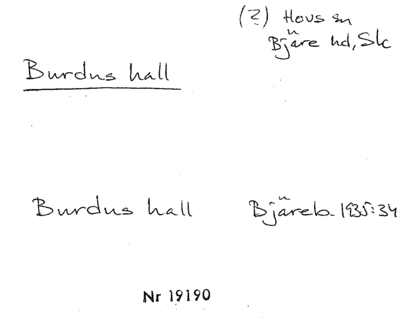 (?) Hovs sn
Bjäre hd, Sk
Burdus hall
Burdus hall Bjäreb. 1935:34
Nr 19190